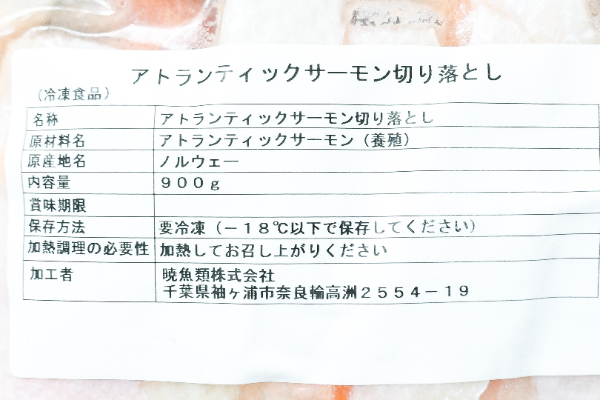 アトランティックサーモン切り落とし
（冷凍食品）
名称 アトランティックサーモン切り落とし
原材料名 アトランティックサーモン（養殖）
原産地名 ノルウェー
内容量 ９００ｇ
賞味期限
保存方法 要冷凍（－１８℃以下で保存してください）
加熱調理の必要性 加熱してお召し上がりください
加工者 暁魚類株式会社
千葉県袖ヶ浦市奈良輪高洲２５５４－１９